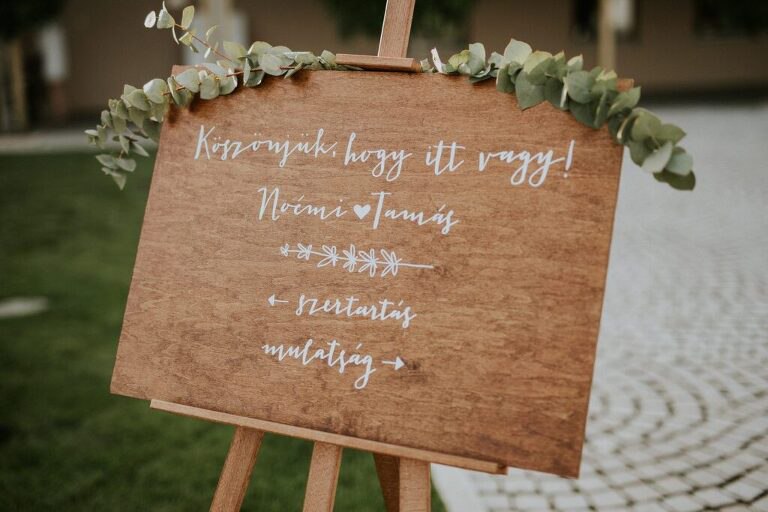 Köszönjük, hogy itt vagy!
Noémi ♥ Tamás
← szertartás
mulatság →